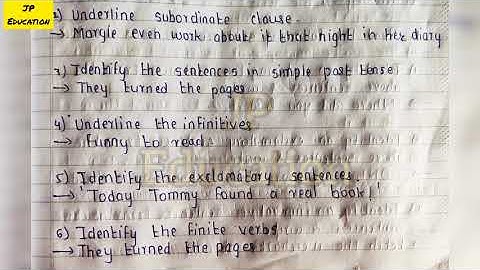 JP
EDUCATION
2) Underline subordinate clause.
→ Margie even work about it that night in her diary
3) Identify the sentences in simple past tense.
→ They turned the pages
4) Underline the infinitives
→ Funny to read.
5) Identify the exclamatory sentences.
→ 'Today Tommy found a real book!'
6) Identify the finite verbs
→ They turned the pages